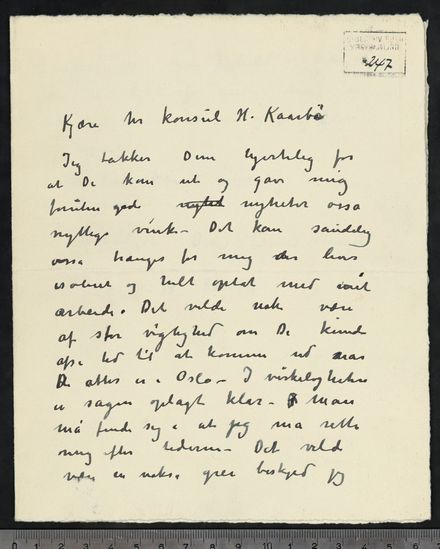 247
Kjære hr konsul H. Kaarbö
Jeg takker Dem hjertelig for
at De kom ut og gav mig
foruten gode nyhed nyheter ossa
nyttige vink – Det kan sandelig
ossa trænges for mig der lever
isoleret og helt optat med mit
arbeide. Det vilde nok være
af stor vigtighed om De kunde
afse tid til at komme ud naar
De atter er i Oslo – I virkeligheden
er sagen oplagt klar – Man
må finde sig i at jeg må rette
mig efter tiderne – Det vilde
være en grei beskjed jeg